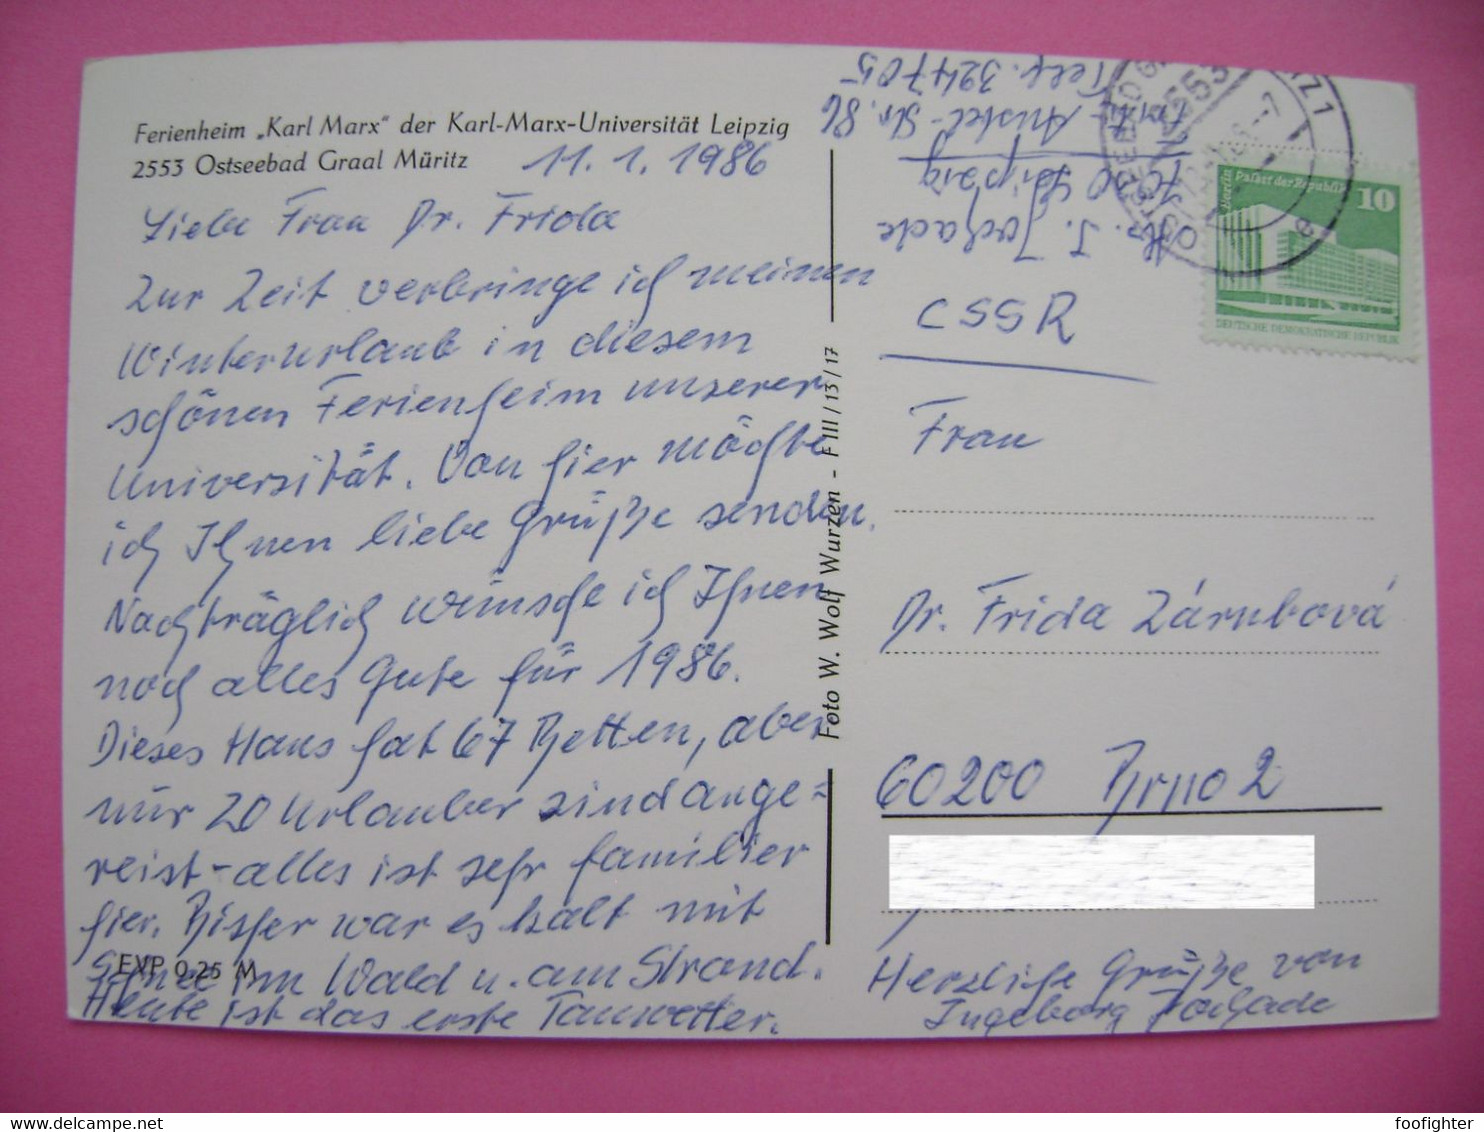 Ferienheim „Karl Marx" der Karl-Marx-Universität Leipzig
2553 Ostseebad Graal Müritz
11. 1. 1986
Liebe Frau Dr. Frida
Zur Zeit verbringe ich meinen
Winterurlaub in diesem
schönen Ferienheim unserer
Universität. Von hier möchte
ich Ihnen liebe Grüße senden.
Nachträglich wünsche ich Ihnen
noch alles Gute für 1986.
Dieses Haus hat 67 Betten, aber
nur 20 Urlauber sind ange=
reist - alles ist sehr familier
hier. Bisher war es kalt mit
Schnee im Wald u. am Strand.
Heute ist das erste Tauwetter.
EVP 0,25 M
Foto W. Wolf Wurzen - F III / 13 / 17
7030 Leipzig
Str. 86
Telf. 324705
Berlin Palast der Republik
10
DEUTSCHE DEMOKRATISCHE REPUBLIK
CSSR
Frau
Dr. Frida Zárubová
60200 Brno 2
Herzliche Grüße von
Ingeborg
foofighter
www.delcampe.net